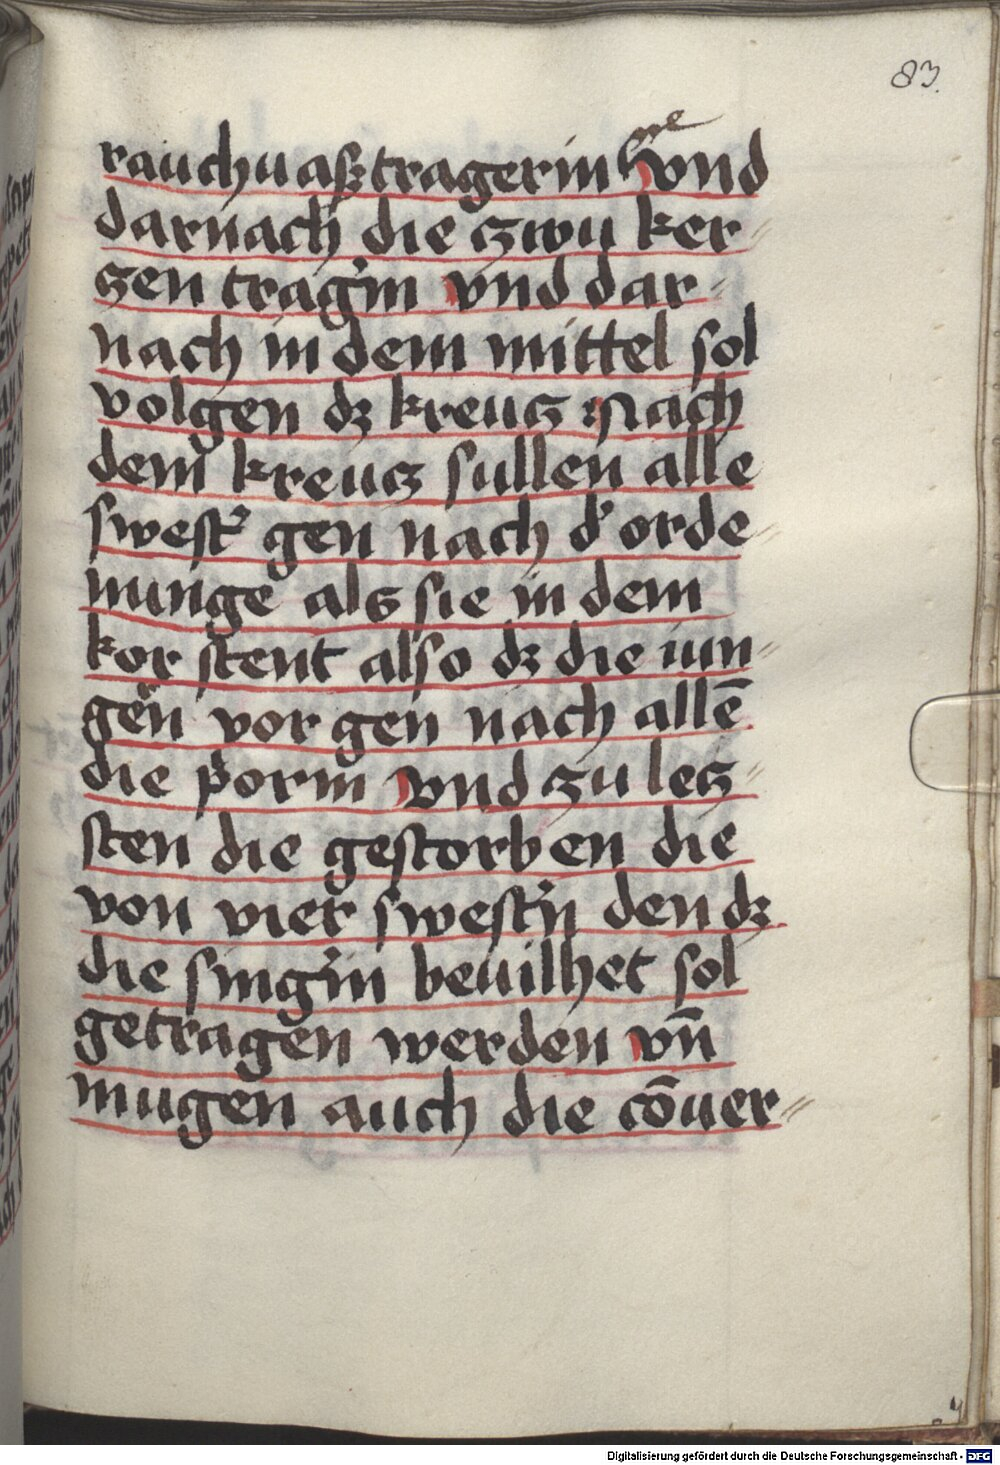 83.
rauchuaßtragerin vnd
darnach die zwu ker⸗
zen trag'in vnd dar⸗
nach in dem mittel sol
volgen dz kreuz Nach
dem kreuz sullen alle
swest' gen nach d' orde⸗
nunge als sie in dem
kor stent also dz die iun⸗
gen vor gen nach allē
die priorin vnd zu lez⸗
sten die gestorben die
von vier swest'n den dz
die sing'in beuilhet sol
getragen werden vn̄
mugen auch die cōuer⸗
Digitalisierung gefördert durch die Deutsche Forschungsgemeinschaft - DFG